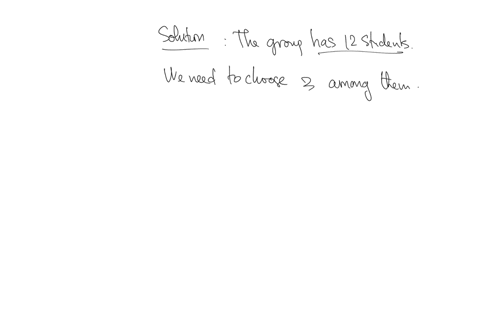 Solution : The group has 12 students.
We need to choose 3 among them.